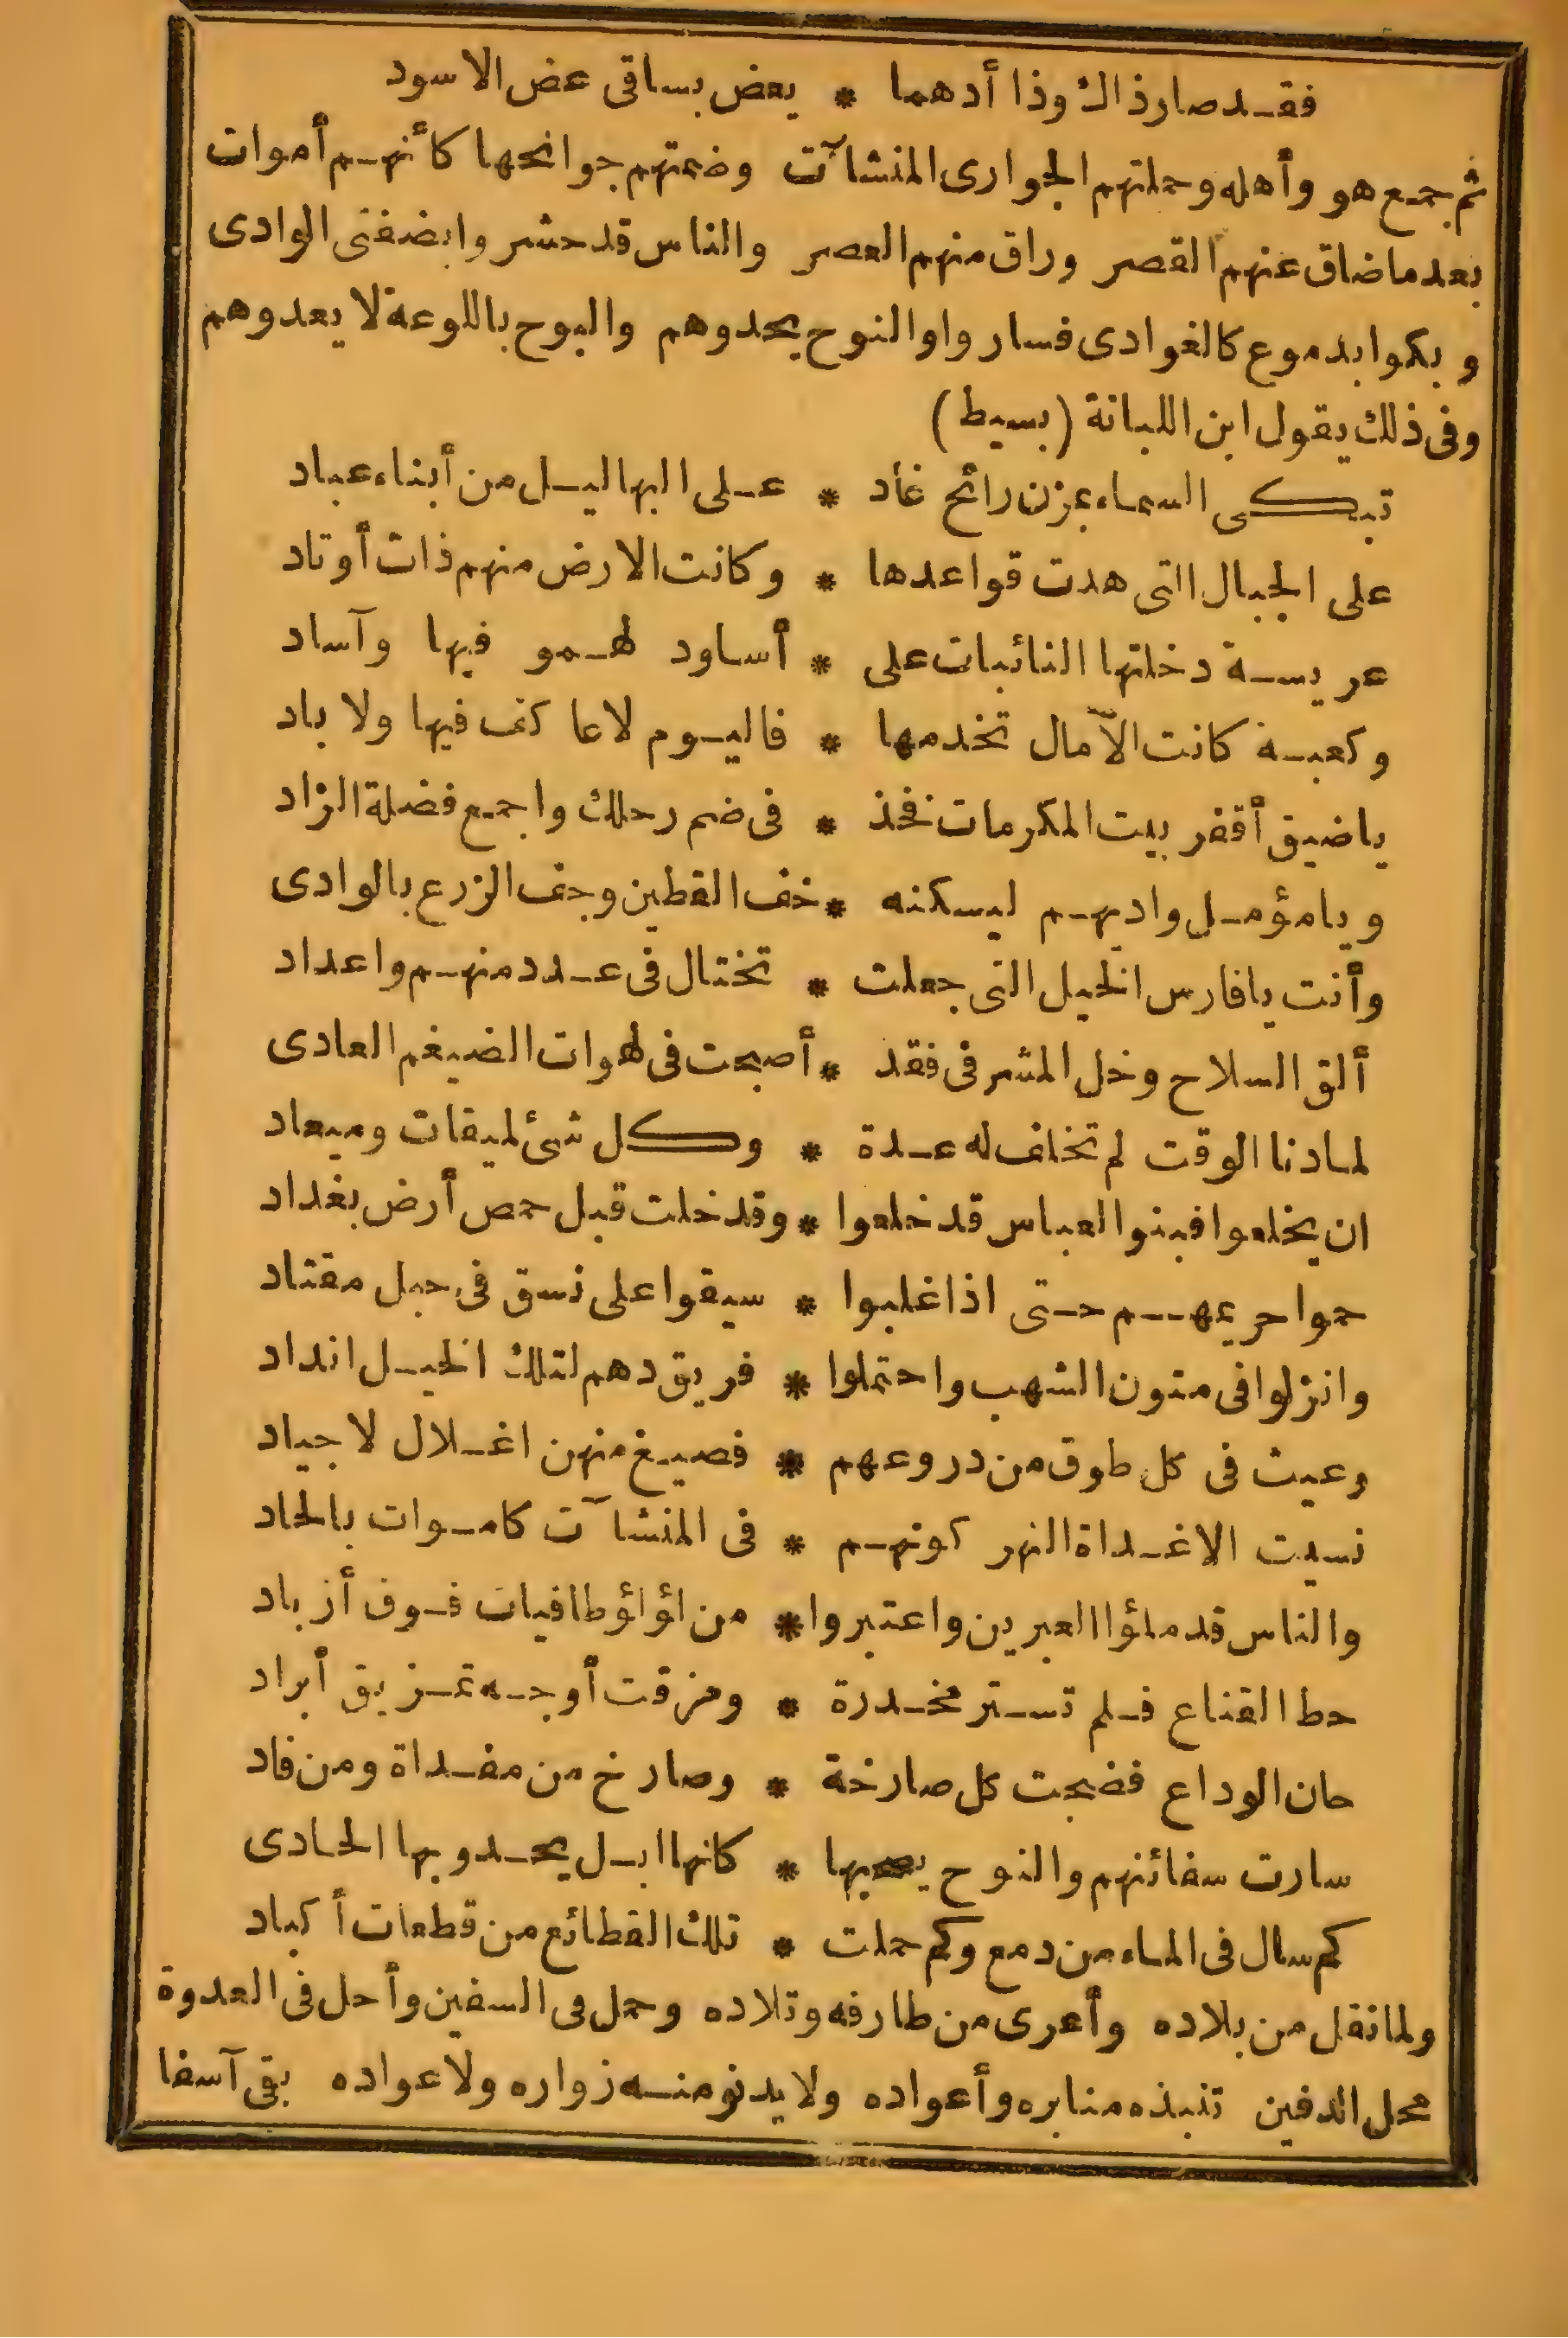 فقد صار ذاك وذا أدهما * يعض بساقى عض الاسود
ثم جمع هو وأهله وحملتهم الجوارى المنشآت وضمتهم جوانحها كأنهم أموات
بعدما ضاق عنهم القصر وراق منهم العصر والناس قد حشر وابضفتى الوادى
وبكوا بدموع كالغوادى فسار واوالنوح يحدوهم والبوح باللوعة لا يعدوهم
وفى ذلك يقول ابن اللبانة (بسيط)
تبكى السماء بمزن رائح غاد * على البهاليل من أبناء عباد
على الجبال التى هدت قواعدها * وكانت الارض منهم ذات أوتاد
عريسة دخلتها النائبات على * أساود لهمو فيها وآساد
وكعبة كانت الآمال تخدمها * فاليوم لاعا كف فيها ولا باد
ياضيق أقفر بيت المكرمات فخذ * فى ضم رحلك واجمع فضلة الزاد
ويا مؤمل واديهم ليسكنه * خف القطين وجف الزرع بالوادى
وأنت يا فارس الخيل التى جعلت * تختال فى عدد منهم واعداد
ألق السلاح وخل المشرفى فقد * أصبحت فى لهوات الضيغم العادى
لمادنا الوقت لم تخلف له عدة * وكل شئ لميقات وميعاد
ان يخلعوا فبنوا العباس قد خلعوا * وقد خلت قبل حمص أرض بغداد
حموا حريمهم حتى اذا غلبوا * سيقوا على نسق فى حبل مقتاد
وانزلوا فى متون الشهب واحتملوا * فريق دهم لتلك الخيل انداد
وعيث فى كل طوق من دروعهم * فصيغ منهن اغلال لاجياد
نسيت الاغداة النهر كونهم * فى المنشآت كاموات بالحاد
والناس قد ملؤا العبرين واعتبروا * من لؤلؤ طافيات فوق أزباد
حط القناع فلم تستر مخدرة * ومزقت أوجه تمزيق أبراد
حان الوداع فضجت كل صارخة * وصارخ من مفداة ومن فاد
سارت سفائنهم والنوح يصحبها * كانها ابل يحدو بها الحادى
كم سال فى الماء من دمع وكم حملت * تلك القطائع من قطعات أكباد
ولما نقل من بلاده وأعرى من طارفه وتلاده وحمل فى السفين وأحل فى العدوة
محل الدفين تنبذه منابره وأعواده ولا يدنو منه زواره ولا عواده بقى آسفا